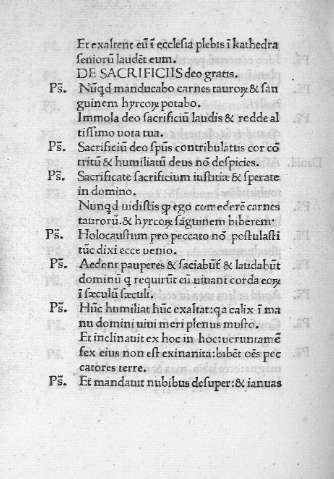 Et exaltent eū ī ecclesia plebis ī kathedra
seniorū laudēt eum.
DE SACRIFICIIS deo gratis.
Ps̄. Nūqd manducabo carnes tauroꝝ & san
guinem hyrcoꝝ potabo.
Immola deo sacrificiū laudis & redde al
tissimo uota tua.
Ps̄. Sacrificiū deo sp̄us contribulatus cor cō
tritū & humiliatū deus nō despicies.
Ps̄. Sacrificate sacrificium iustitiæ & sperate
in domino.
Nunqd uidistis ꝙ ego comederē carnes
taurorū & hyrcoꝝ sāgunem biberem:
Ps̄. Holocaustum pro peccato nō postulasti
tūc dixi ecce uenio.
Ps̄. Aedent pauperes & saciabūt & laudabūt
dominū q requirūt eū uiuant corda eoꝝ
ī sæculū sæculi.
Ps̄. Hūc humiliat hūc exaltat: qa calix ī ma
nu domini uini meri plenus musto.
Et inclinauit ex hoc in hoc: ueruntamē
fex eius non est exinanita: bibēt oēs pec
catores terre.
Ps̄. Et mandauit nubibus desuper: & ianuas